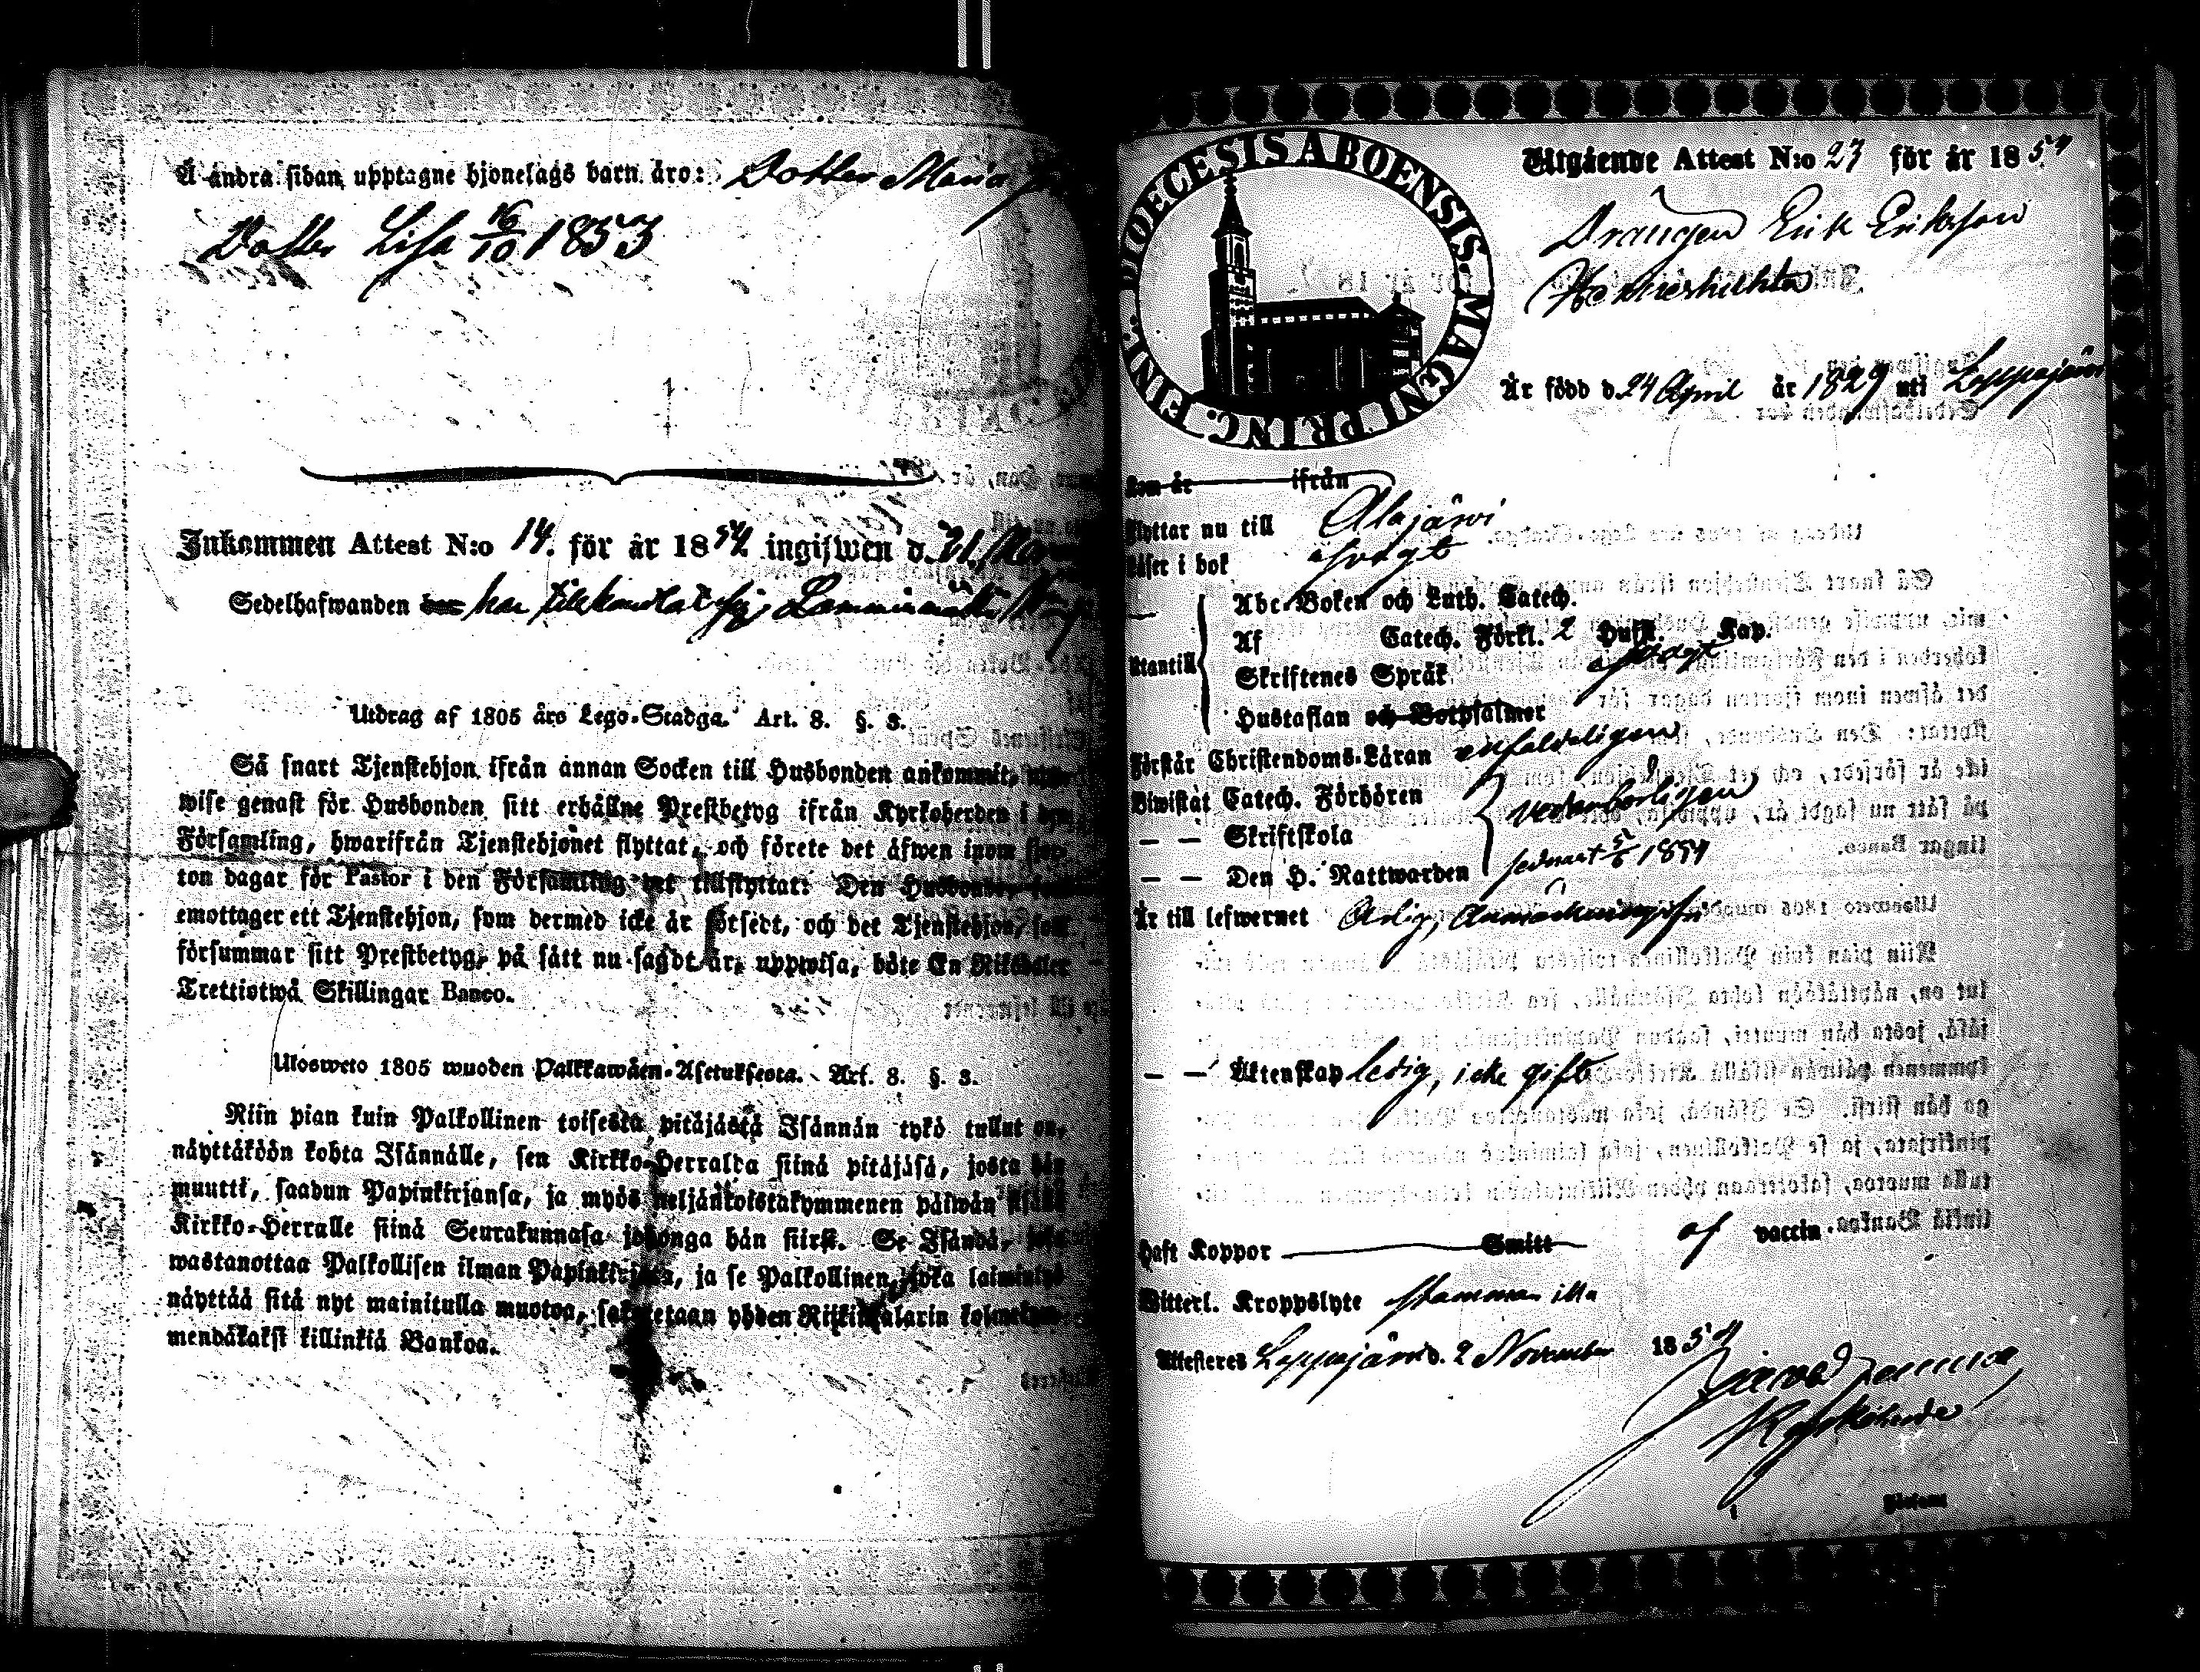 Å andra sidan upptagne hjonelags barn äro: Dotter Maria
Dotter Lisa 16/10 1853
Inkommen Attest N:o 14. för år 1854 ingifwen d. 21.
Sedelhafwanden har
Utdrag af 1805 års Lego-Stadga. Art. 8. §. 3.
Så snart Tjenstehjon ifrån annan Socken till Husbonden ankommit,
wise genast för Husbonden sitt erhållne Prestbetyg ifrån Kyrkoherden i den
Församling, hwarifrån Tjenstehjonet flyttat, och förete det äfwen inom fjor-
ton dagar för Pastor i den Församling det tillflyttat: Den Husbonde, som
emottager ett Tjenstehjon, som dermed icke är försedt, och det Tjenstehjon, som
försummar sitt Prestbetyg, på sätt nu sagdt är, uppwisa, böte En Riksdaler
Trettiotwå Skillingar Banco.
Ulosweto 1805 wuoden Palkkawäen-Asetuksesta. Art. 8. §. 3.
Niin pian kuin Palkollinen toisesta pitäjästä Isännän tykö tullut on,
näyttäköön kohta Isännälle, sen Kirkko-Herralta siinä pitäjäsä, josta hän
muutti, saadun Papinkirjansa, ja myös neljäntoistakymmenen päiwän sisällä
Kirkko-Herralle siinä Seurakunnasa johonga hän siirsi. Se Isändä, joka
wastanottaa Palkollisen ilman Papinkirjata, ja se Palkollinen, joka laiminlyö
näyttää sitä nyt mainitulla muotoa, sakotetaan yhden Riikintalarin kolmekym-
mendäkaksi killinkiä Bankoa.
DIOECESIS ABOENSIS MAGNI PRINC. FINL.
Utgående Attest N:o 23 för år 1854
Drängen Erik Eriksson
Är född d. 24 April år 1829 uti Leppäjärvi
Kom år ifrån
Flyttar nu till Alajärvi
Läser i bok svagt
Utantill
Abc-Boken och Luth. Catech.
Af Catech. Förkl. 2 Hufst. Kap.
svagt
Skriftenes Språk
Hustaflan och Botpsalmer
Förstår Christendoms-Läran enfaldeligen
Biwistat Catech. Förhören
vederbörligen
— — Skriftskola
— — Den H. Nattwarden sednast 5/6 1854
Är till lefwernet Ärlig,
— — Äktenskap ledig, icke gift
Haft Koppor Smitt af vaccin
Witterl. Kroppslyte stammar illa
Attesteras Leppäjärvi d. 2 November 1854